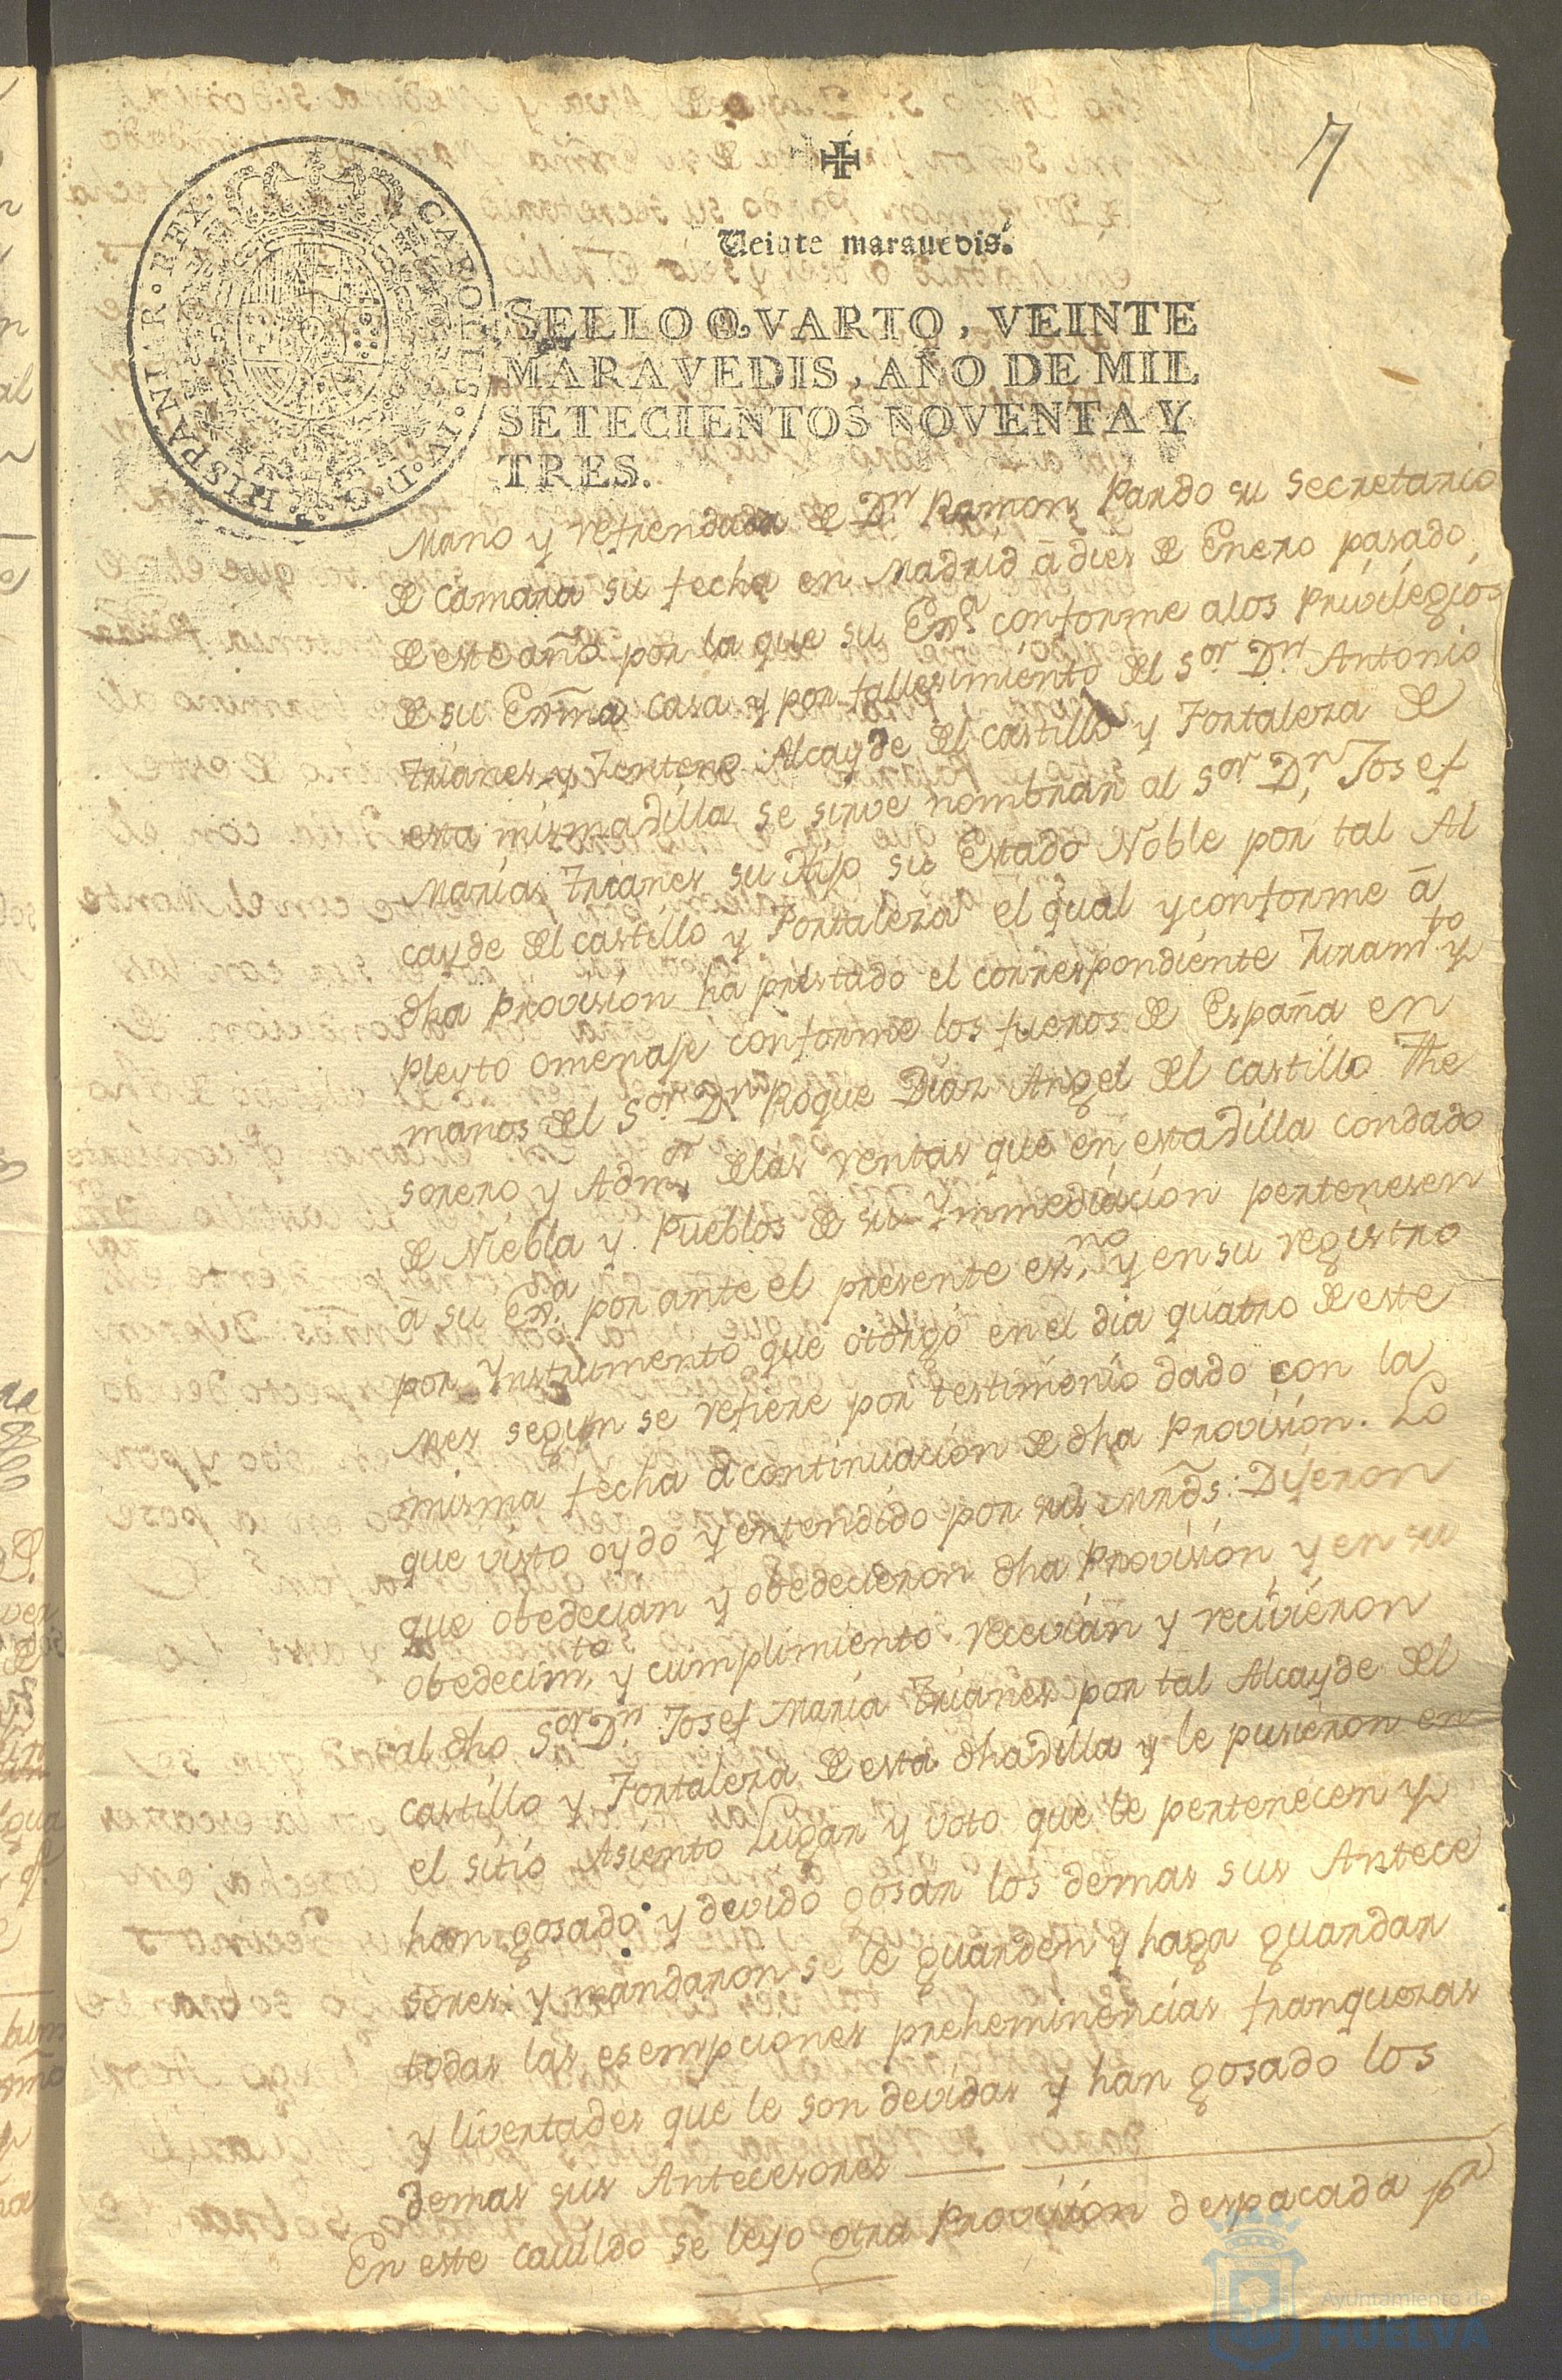 7
Veinte marauedis.
CAROLUS. IV. D. G. HISPANIAR. REX.
SELLO QVARTO, VEINTE
MARAVEDIS, AÑO DE MIL
SETECIENTOS NOVENTA Y
TRES.
Mano y refrendada de Dn Ramon Pardo su Secretario
de Camara su fecha en Madrid â dies de Enero pasado
de este año por la que su Exa conforme a los Privilegios
de su Exma Casa y por fallesimiento del Sor Dn Antonio
Trianes y Tentero Alcayde del Castillo y Fortaleza de
esta misma villa se sirve nombrar al Sor Dn Josef
Maria Trianes su Hijo su Estado Noble por tal Al
cayde del Castillo y Fortaleza el qual y conforme â
dha Provision ha prestado el correspondiente Juramto y
Pleyto omenaje conforme los fueros de España en
manos del Sor Dn Roque Diaz Angel del Castillo The
sorero y Admor de las rentas que en esta villa Condado
de Niebla y Pueblos de su Ymmediacion pertenesen
â su Exa por ante el presente esno y en su registro
por Ynstrumento que otorgó en el dia quatro de este
Mes segun se refiere por testimonio dado con la
misma fecha a continuacion de dha Provision. Lo
que visto oydo y entendido por sus mrds: Dijeron
que obedecian y obedecieron dha Provision y en su
obedecimto y cumplimiento recevian y recivieron
al dho Sor Dn Josef Maria Trianes por tal Alcayde del
Castillo y Fortaleza de esta dha villa y le pusieron en
el sitio Asiento Lugar y voto que le pertenecen y
han gosado y devido gosar los demas sus Antece
sores: y mandaron se le guarden y haga guardar
todas las esempciones preheminencias franquezas
y livertades que le son devidas y han gosado los
demas sus Antecesores
En este cavildo se leyo otra Provision despacada pr
Ayuntamiento de
HUELVA